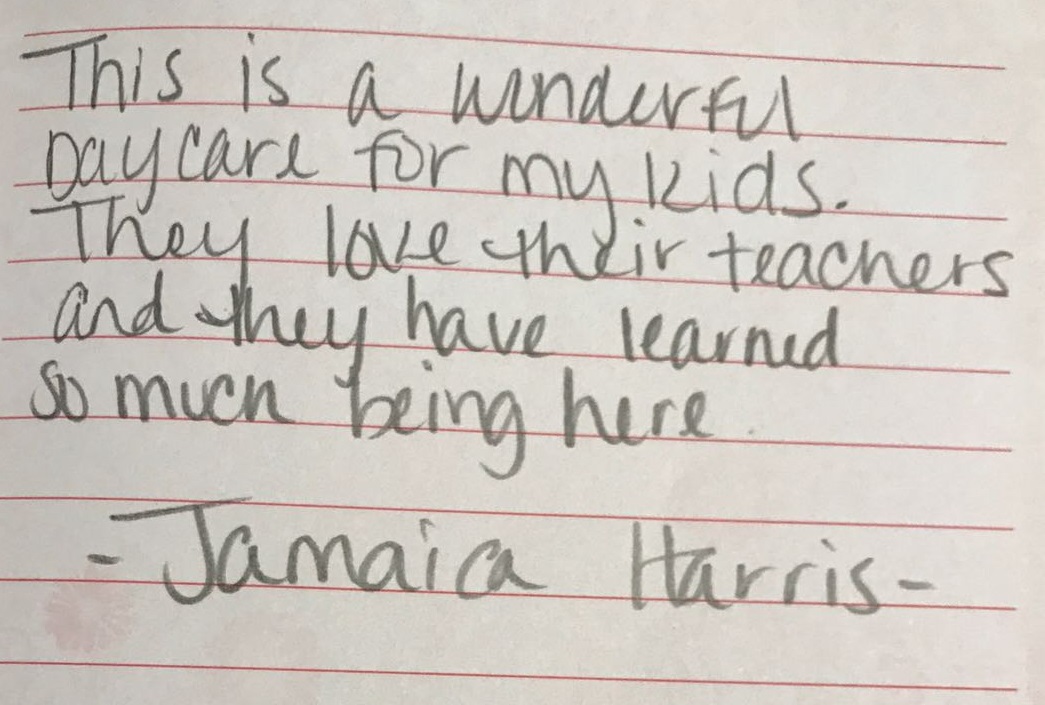 This is a wonderful
Daycare for my kids.
They love their teachers
and they have learned
so much being here.
-Jamaica Harris-